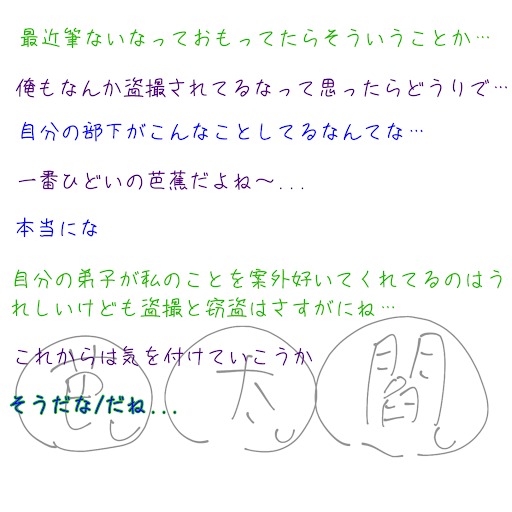 最近筆ないなっておもってたらそういうことか…
俺もなんか盗撮されてるなって思ったらどうりで…
自分の部下がこんなことしてるなんてな…
一番ひどいの芭蕉だよね～...
本当にな
自分の弟子が私のことを案外好いてくれてるのはう
れしいけども盗撮と窃盗はさすがにね…
これからは気を付けていこうか
そうだな/だね...
芭 太 閻